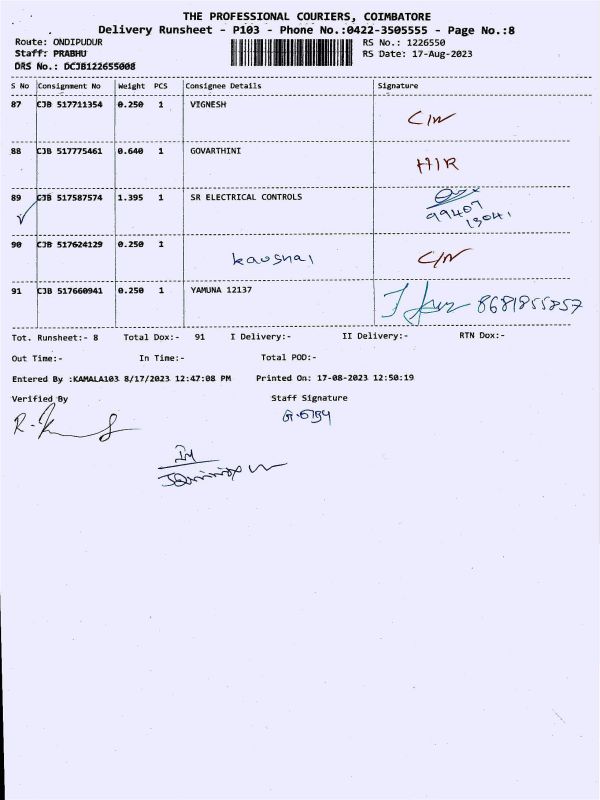 THE PROFESSIONAL COURIERS, COIMBATORE
Delivery Runsheet - P103 - Phone No.:0422-3505555 - Page No.:8
Route: ONDIPUDUR RS No.: 1226550
Staff: PRABHU RS Date: 17-Aug-2023
DRS No.: DCJB122655008
S No Consignment No Weight PCS Consignee Details Signature
87 CJB 517711354 0.250 1 VIGNESH
C/N
88 CJB 517775461 0.640 1 GOVARTHINI
H/R
89 CJB 517587574 1.395 1 SR ELECTRICAL CONTROLS
99407
90 CJB 517624129 0.250 1
C/N
91 CJB 517660941 0.250 1 YAMUNA 12137
8681855857
Tot. Runsheet:- 8 Total Dox:- 91 I Delivery:- II Delivery:- RTN Dox:-
Out Time:- In Time:- Total POD:-
Entered By :KAMALA103 8/17/2023 12:47:08 PM Printed On: 17-08-2023 12:50:19
Verified By Staff Signature